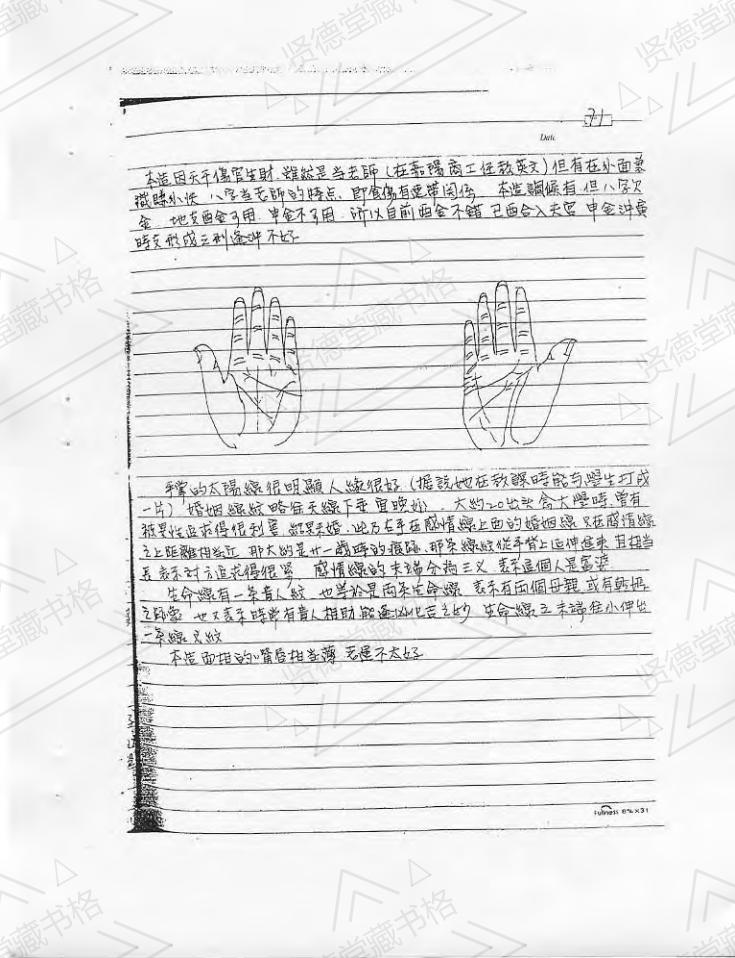 71
Date
本造因天干傷官生財，雖然是當老師（在嘉陽商工任教英文）但有在外面兼
職賺外快，八字當老師的特点，即食傷有連帶関係，本造調候有但八字欠
金，地支酉金可用，申金不可用，所以目前酉金不錯，己酉合入夫宮，申金沖寅
時支形成三刑逢沖不好
手掌的太陽線很明顯人緣很好（據說她在教課時能与學生打成
一片）婚姻線紋略往天線下垂宜晚婚，大約20出头念大學時，曾有
被異性追求得很利害，結果未婚，此乃右手在感情線上面的婚姻線，又在感情線
之上距離相当近，那大約是廿一歲時的痕跡，那条線紋從手背上延伸進來且相当
長表示对方追求得很緊，感情線的末端分為三叉，表示這個人是富婆
生命線有一条貴人紋，也等於是兩条生命線，表示有兩個母親，或有乾媽
之跡象，也又表示時常有貴人相助能逢凶化吉之妙，生命線之末端往外伸出
一条線又紋
本造面相的嘴唇相当薄，老運不太好
Fullness
贤德堂藏书格